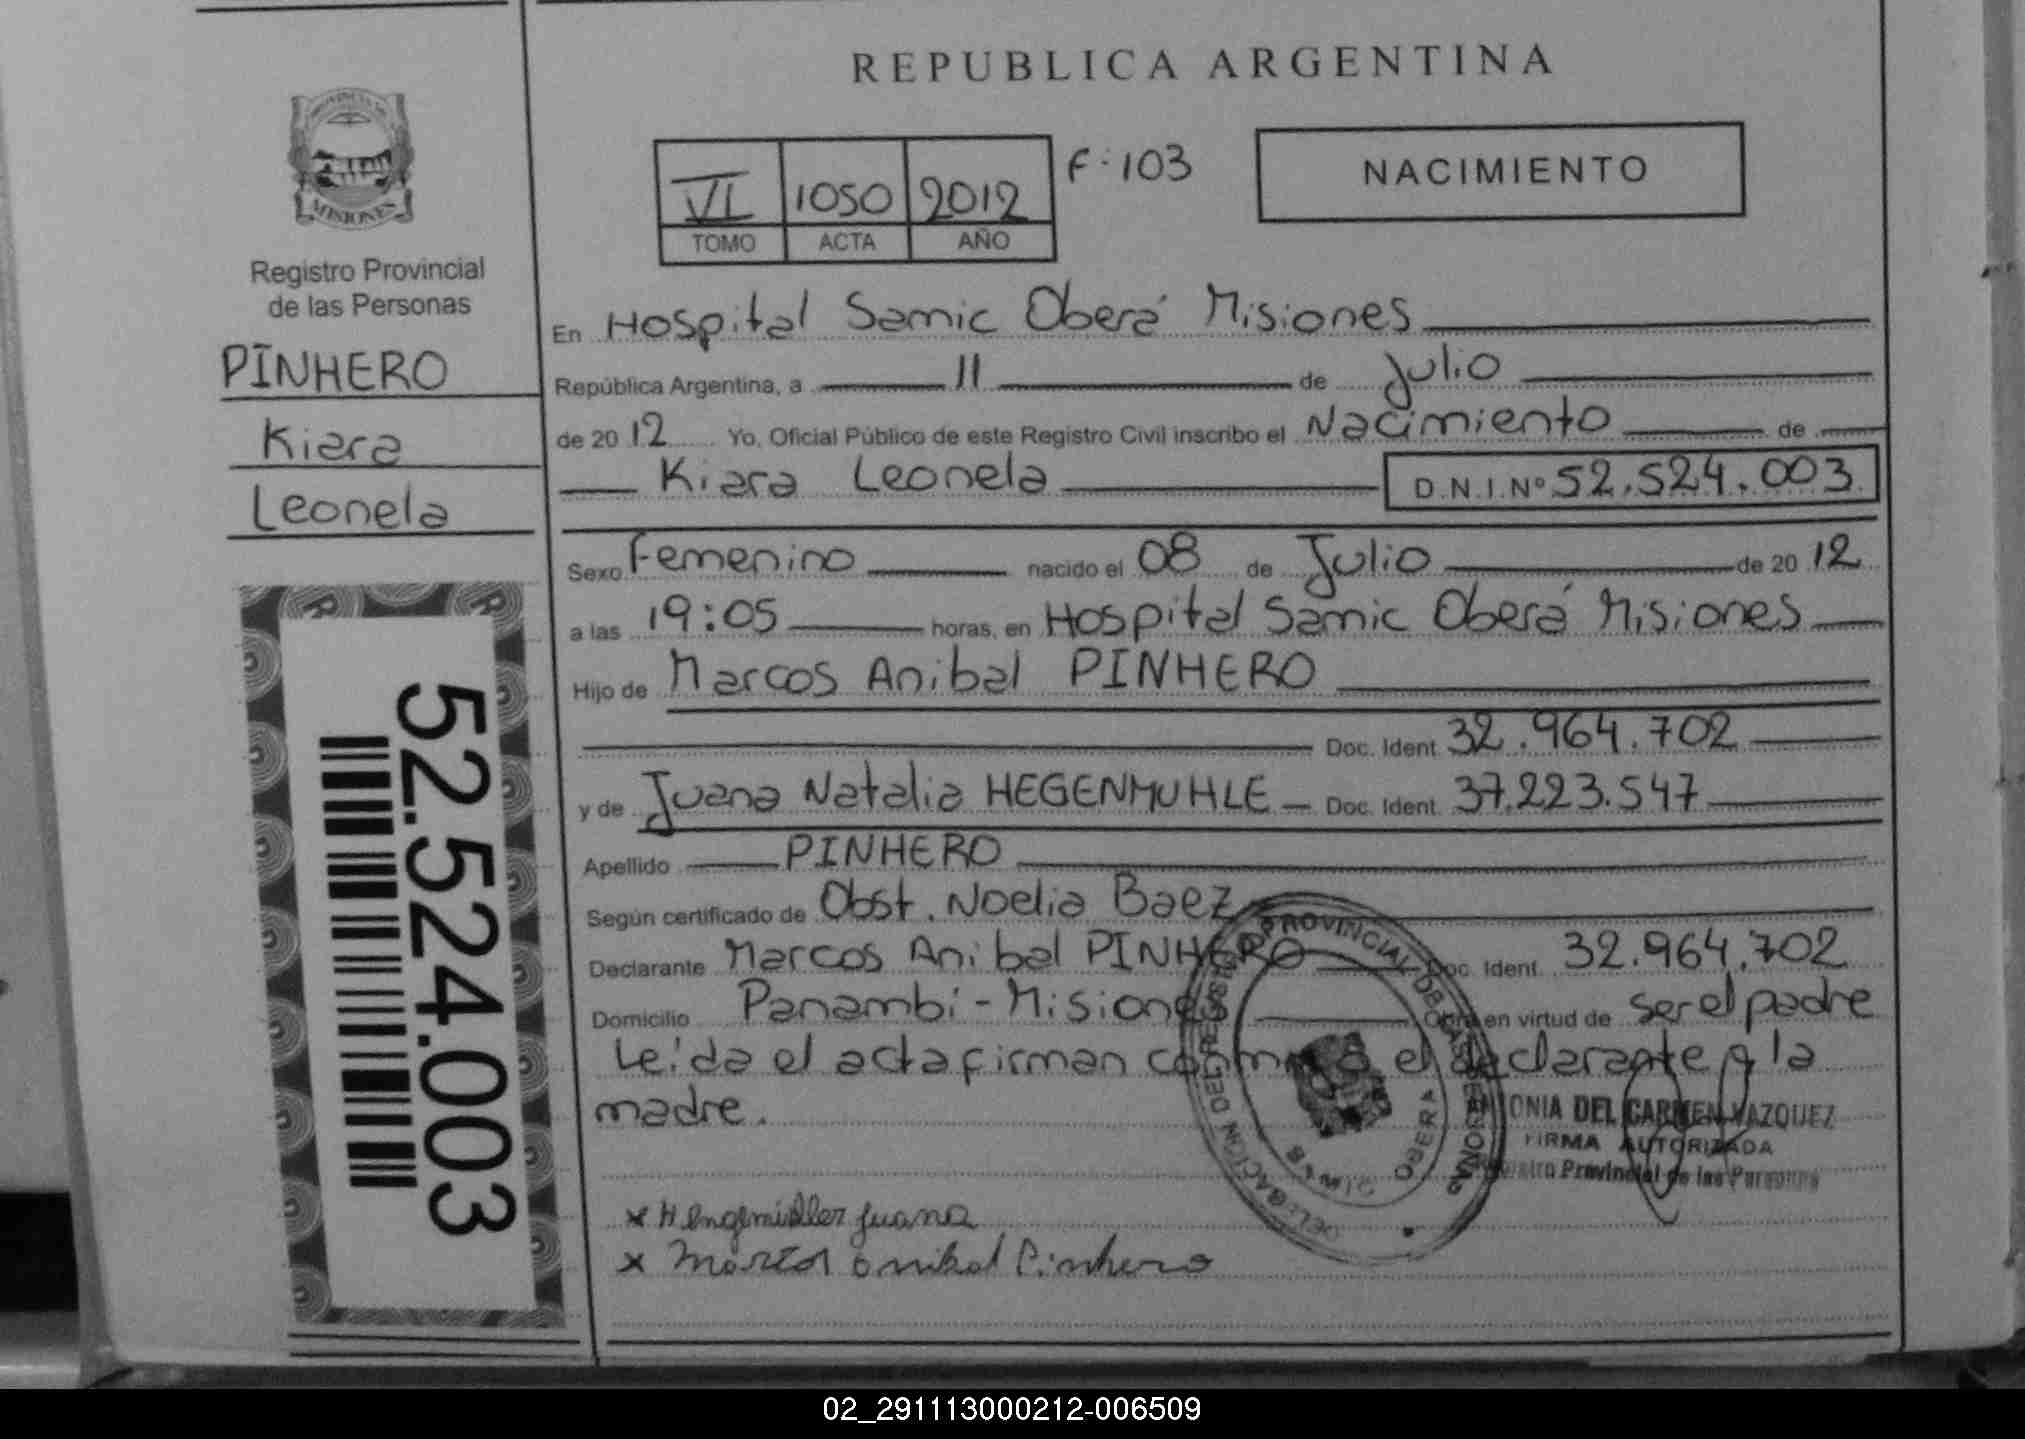 REPUBLICA ARGENTINA
PROVINCIA DE
MISIONES
Registro Provincial
de las Personas
PINHERO
Kiara
Leonela
52.524.003
VI 1050 2012 F:103
TOMO ACTA AÑO
NACIMIENTO
En Hospital Samic Oberá Misiones
República Argentina, a 11 de Julio
de 2012 Yo, Oficial Público de este Registro Civil inscribo el Nacimiento de
Kiara Leonela D.N.I.Nº 52.524.003
Sexo Femenino nacido el 08 de Julio de 2012
a las 19:05 horas, en Hospital Samic Oberá Misiones
Hijo de Marcos Anibal PINHERO
Doc. Ident. 32.964.702
y de Juana Natalia HEGENMUHLE Doc. Ident. 37.223.547
Apellido PINHERO
Según certificado de Obst. Noelia Baez
Declarante Marcos Anibal PINHERO Doc. Ident. 32.964.702
Domicilio Panambí - Misiones Obra en virtud de ser el padre
Leída el acta firman conmigo el declarante y la
madre.
DELEGACION DEL REGISTRO PROVINCIAL DE LAS PERSONAS
OBERA
ANTONIA DEL CARMEN VAZQUEZ
FIRMA AUTORIZADA
Registro Provincial de las Personas
x Hengemüller juana
x Marcos anibal Pinhero
02_291113000212-006509